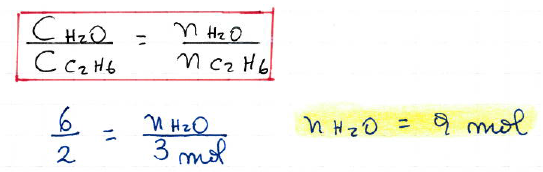 C H₂O / C C₂H₆ = n H₂O / n C₂H₆
6 / 2 = n H₂O / 3 mol
n H₂O = 9 mol